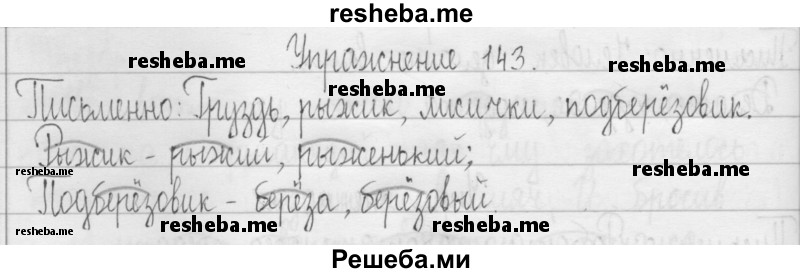 resheba.me
Упражнение 143.
resheba.me resheba.me
Письменно: Груздь, рыжик, лисички, подберёзовик.
resheba.me
Рыжик - рыжий, рыженький;
resheba.me resheba.me
Подберёзовик - берёза, берёзовый.
resheba.me resheba.me resheba.me
Решеба.ми